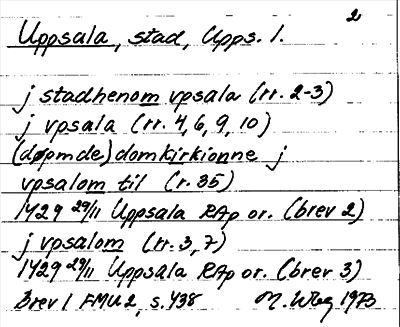 2
Uppsala, stad, Upps. l.
j stadhenom vpsala (rr. 2-3)
j vpsala (rr. 4, 6, 9, 10)
(døpmde) domkirkionne j
vpsalom til (r. 35)
1429 29/11 Uppsala RAp or. (brev 2)
j vpsalom (rr. 3, 7)
1429 29/11 Uppsala RAp or. (brev 3)
brev 1 FMU 2, s. 438 M. Wbg 1973